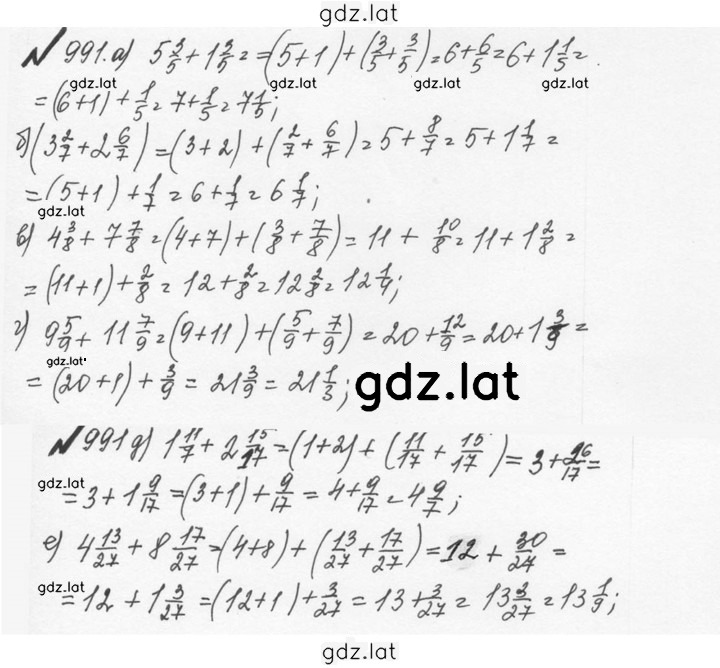 gdz.lat
№ 991. а) 5 3/5 + 1 3/5 = (5+1) + (3/5 + 3/5) = 6 + 6/5 = 6 + 1 1/5 =
gdz.lat gdz.lat gdz.lat gdz.lat
= (6+1) + 1/5 = 7 + 1/5 = 7 1/5;
б) (3 2/7 + 2 6/7) = (3+2) + (2/7 + 6/7) = 5 + 8/7 = 5 + 1 1/7 =
= (5+1) + 1/7 = 6 + 1/7 = 6 1/7;
gdz.lat
в) 4 3/8 + 7 7/8 = (4+7) + (3/8 + 7/8) = 11 + 10/8 = 11 + 1 2/8 =
= (11+1) + 2/8 = 12 + 2/8 = 12 2/8 = 12 1/4;
г) 9 5/9 + 11 7/9 = (9+11) + (5/9 + 7/9) = 20 + 12/9 = 20 + 1 3/9 =
gdz.lat
= (20+1) + 3/9 = 21 3/9 = 21 1/3;
gdz.lat
№ 991 д) 1 11/7 + 2 15/17 = (1+2) + (11/17 + 15/17) = 3 + 26/17 =
gdz.lat
= 3 + 1 9/17 = (3+1) + 9/17 = 4 + 9/17 = 4 9/7;
е) 4 13/27 + 8 17/27 = (4+8) + (13/27 + 17/27) = 12 + 30/27 =
gdz.lat
= 12 + 1 3/27 = (12+1) + 3/27 = 13 + 3/27 = 13 3/27 = 13 1/9;
gdz.lat